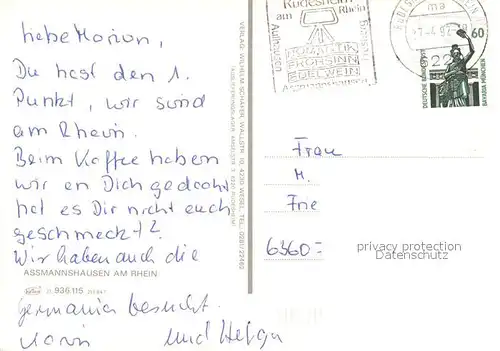 liebe Marion,
Du hast den 1.
Punkt, wir sind
am Rhein.
Beim Kaffee haben
wir an Dich gedacht
hat es Dir nicht auch
geschmeckt?
Wir haben auch die
ASSMANNSHAUSEN AM RHEIN
936.115
Germania besucht.
Karin und Helga
VERLAG WILHELM SCHÄFER, WALLSTR. 10, 4230 WESEL, TEL. 0281/22460
Rüdesheim
am Rhein
Aulhausen
ROMANTIK
FROHSINN
EDELWEIN
Assmannshausen
ma
60
DEUTSCHE BUNDESPOST
BAVARIA MÜNCHEN
Frau
M.
6360
privacy protection
Datenschutz